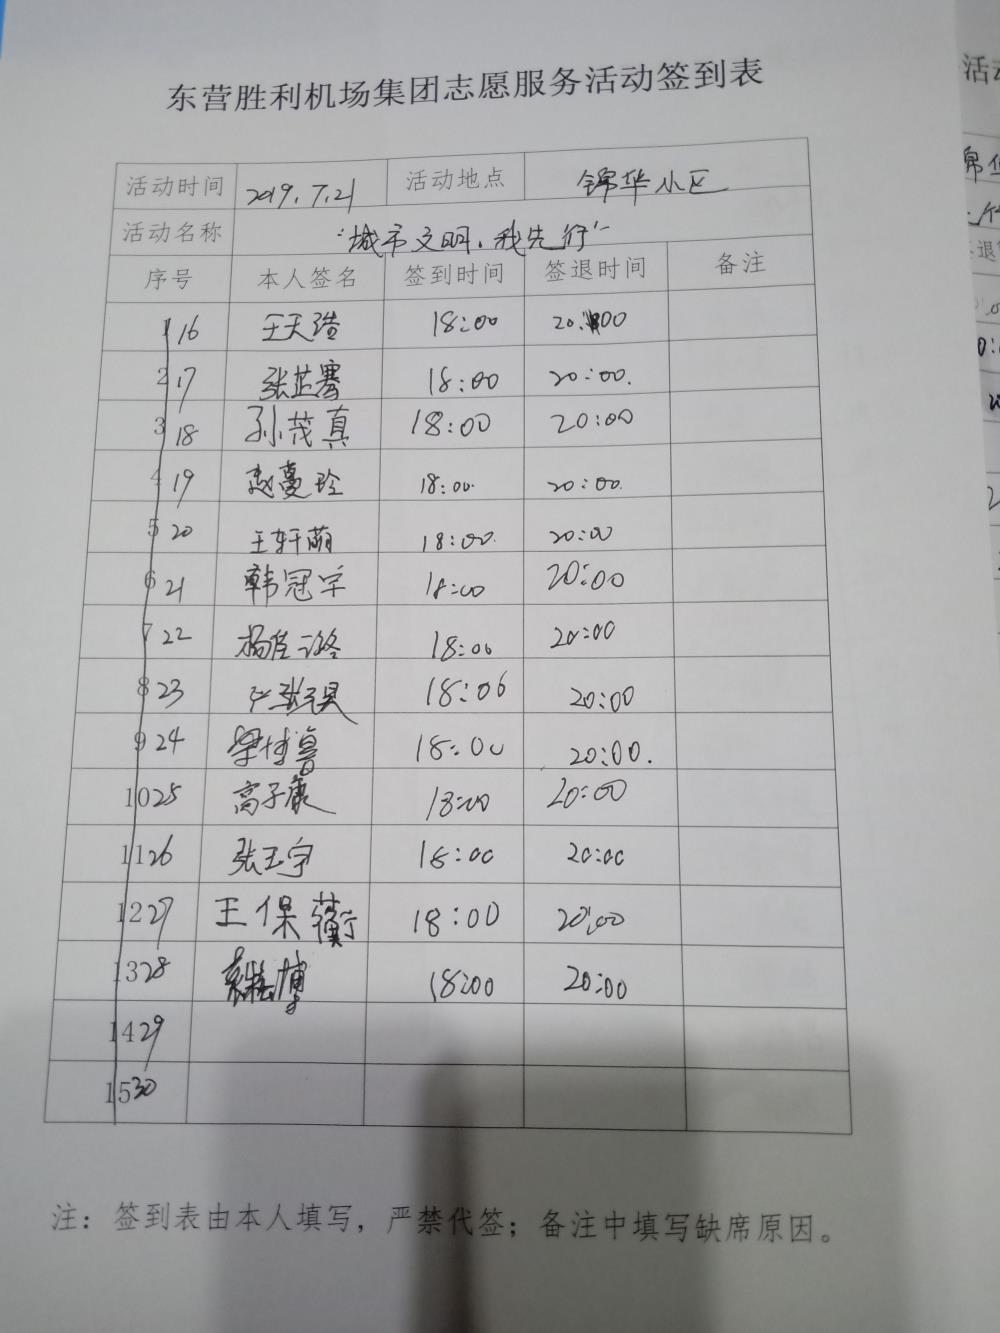 东营胜利机场集团志愿服务活动签到表
活动时间 2019.7.21 活动地点 锦华小区
活动名称 "城市文明,我先行"
序号 本人签名 签到时间 签退时间 备注
1 16 王天浩 18:00 20:00
2 17 张芷骞 18:00 20:00.
3 18 孙茂真 18:00 20:00
4 19 赵蔓玲 18:00. 20:00.
5 20 王轩萌 18:00. 20:00
6 21 韩冠宇 18:00 20:00
7 22 杨佳 18:00 20:00
8 23 18:06 20:00
9 24 梁博鲁 18:00 20:00.
10 25 高子康 18:00 20:00
11 26 张玉宇 18:00 20:00
12 27 王保蘅 18:00 20:00
13 28 博 18:00 20:00
14 29
15 30
注：签到表由本人填写，严禁代签；备注中填写缺席原因。